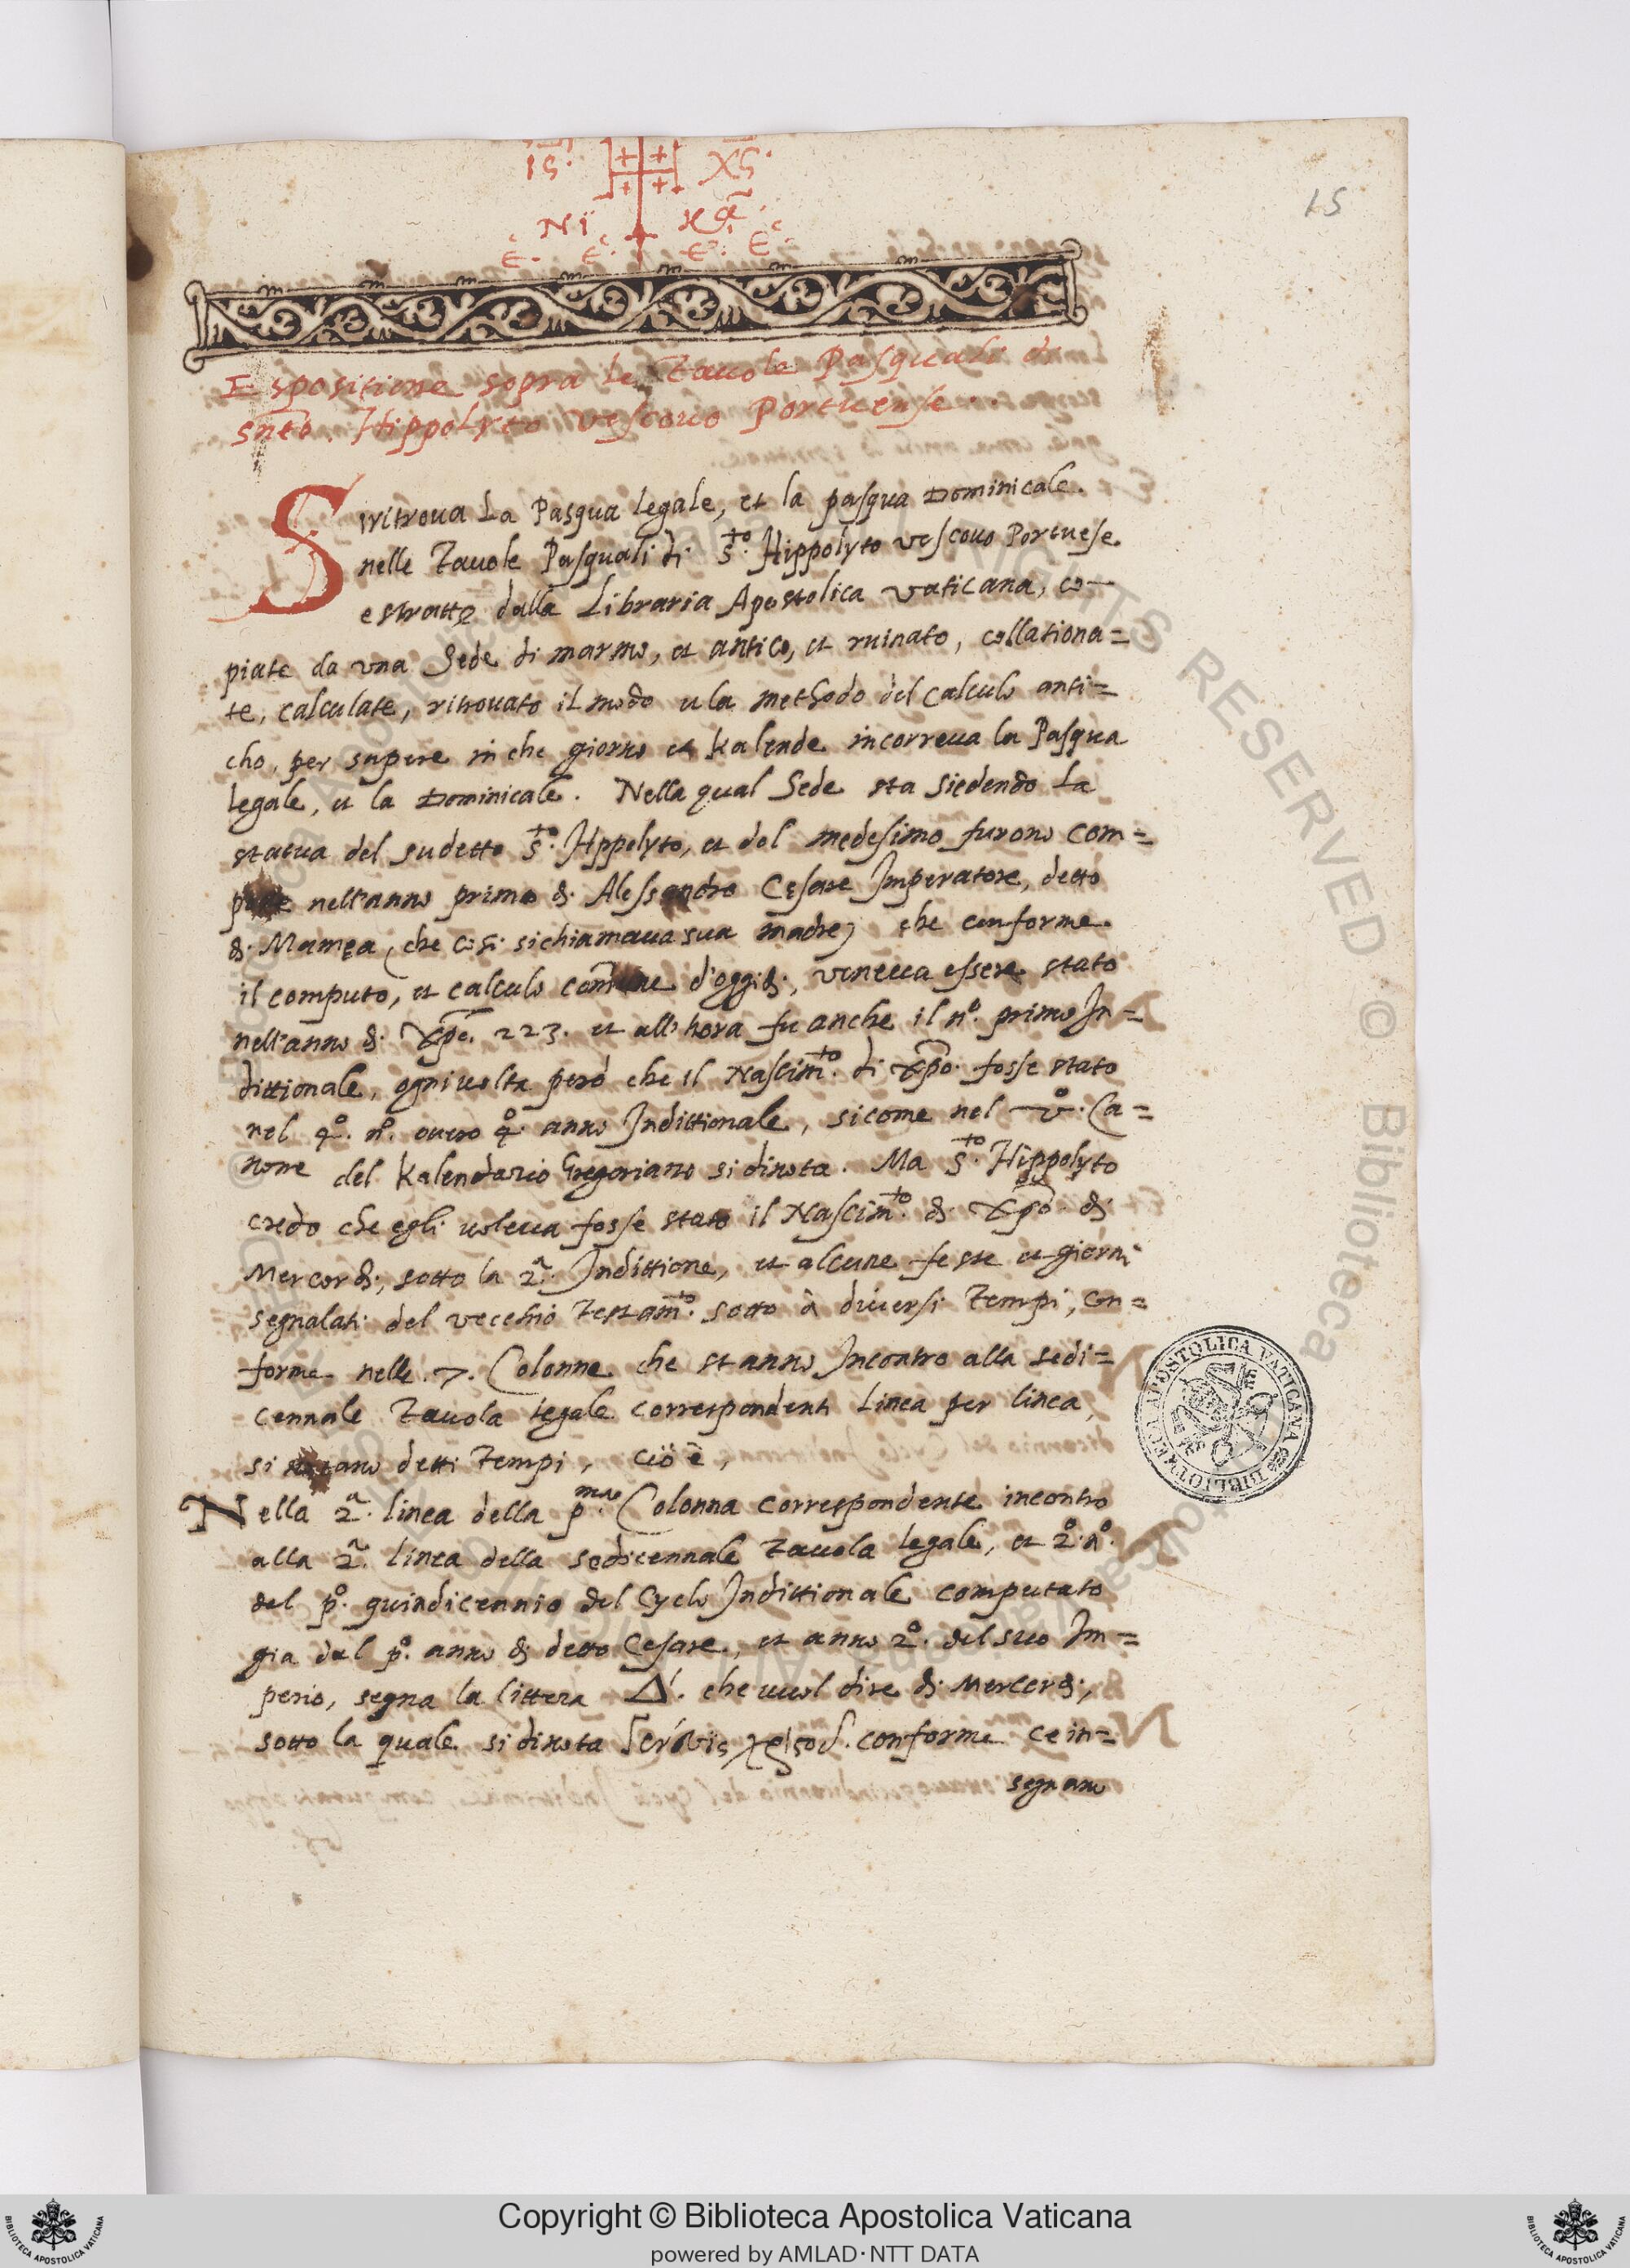 15
IS. XS.
NI KA
Є. Є. Є. Є.
Espositione sopra le Tauole Pasquali di
snto. Hippolyto Vescouo Portuense.
Si ritroua La Pasqua Legale, et la pasqua Dominicale.
nelle Tauole Pasquali di S.to Hippolyto vescouo Portuese.
estratte dalla Libraria Apostolica Vaticana, co-
piate da una Sede di marmo, et antico, et ruinato, collationa=
te, calculate, ritrouato il modo e la methodo del calculo anti=
cho, per sapere in che giorno et kalende incorreua la Pasqua
legale, et la Dominicale. Nella qual Sede sta siedendo La
statua del sudetto S.to Hppolyto, et dal medesimo furono com=
nell'anno primo di Alessandro Cesare Imperatore, detto
di Mamea, (che così si chiamaua sua madre) che conforme
il computo, et calculo d'oggidi, veneua essere stato
nell'anno di Xpo. 223. et all'hora fu anche il n.o primo In=
dittionale, ogni uolta però che il Nascim.to di Xpo. fosse stato
nel 4.o n.o ouero 4.o anno Indittionale, sicome nel V.o Ca=
none del Kalendario Gregoriano si dinota. Ma S.to Hippolyto
credo che egli uoleua fosse stato il Nascim.to di Xpo. di
Mercordi, sotto la 2.a Indittione, et alcune feste et giorni
segnalati del vecchio Testam.to sotto à diuersi Tempi, con=
forme nelle .7. Colonne che stanno Incontro alla sedi=
cennale Tauola legale correspondenti Linea per linea,
si detti Tempi, cioè,
Nella 2.a linea della p.ma Colonna correspondente incontro
alla 2.a linea della sedicennale Tauola legale, et 2.o n.o
del p.o quindicennio del Cyclo Indittionale computato
gia dal p.o anno di detto Cesare, et anno 2.o del suo Im=
perio, segna la littera Δ'. che uuol dire di Mercordi,
sotto la quale si dinota conforme ce in=
segnano
BIBLIOTHECA APOSTOLICA VATICANA
© Biblioteca Apostolica Vaticana ALL RIGHTS RESERVED
Copyright © Biblioteca Apostolica Vaticana
powered by AMLAD·NTT DATA
BIBLIOTECA APOSTOLICA VATICANA
BIBLIOTECA APOSTOLICA VATICANA